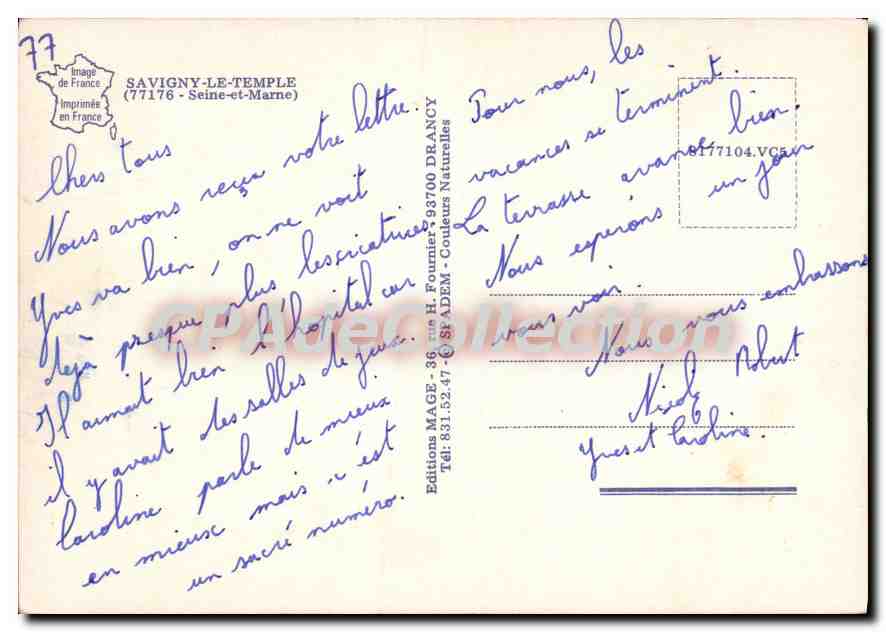 77
Image
de France
Imprimée
en France
SAVIGNY-LE-TEMPLE
(77176 - Seine-et-Marne)
Chers tous
Nous avons reçu votre lettre.
Yves va bien, on ne voit
dejà presque plus les cicatrices.
Il aimait bien l'hopital car
il y avait des salles de jeux.
Caroline parle de mieux
en mieux mais c'est
un sacré numéro.
Editions MAGE - 36, rue H. Fournier - 93700 DRANCY
Tél: 831.52.47 - © SPADEM - Couleurs Naturelles
Pour nous, les
vacances se terminent.
La terrasse avance bien.
Nous espérons un jour
vous voir.
Nous vous embrassons
Nicole Robert
Yves et Caroline.
177104.VC5
CPAdeCollection